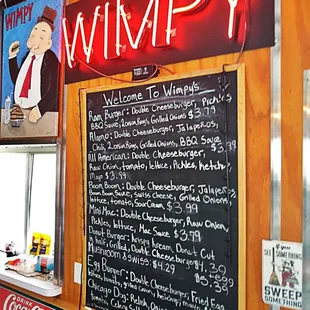 WIMPY
WIMPY
Welcome To Wimpy's
Ram Burger: Double Cheeseburger, Pickles
BBQ Sauce, 2 onion Rings, Grilled Onions $3.79
Alamo: Double Cheeseburger, Jalapeños
Chili, 2 onion Rings, Grilled Onions, BBQ Sauce
All American: Double Cheeseburger, $3.79
Raw Onion, tomato, lettuce, Pickles, Ketchup
Mayo $3.99
Boom Boom: Double Cheeseburger, Jalapeños
Boom Boom Sauce, Swiss Cheese, Grilled Onions
lettuce, tomato, Sour Cream $3.99
Mini Mac: Double Cheeseburger, Raw Onion
Pickles, lettuce, Mac Sauce $3.99
Donut Burger: Krispy Kream, Donut Cut
in half, Grilled Onion, Double Cheeseburger $4.39
Mushroom & Swiss: $4.29
Egg Burger: Double Cheeseburger, Fried Egg
$5.39
Chicago Dog: Relish, Onion
tomatoes
IF YOU
SEE
SOMETHING
SWEEP
SOMETHING
Coca-Cola
DRINK